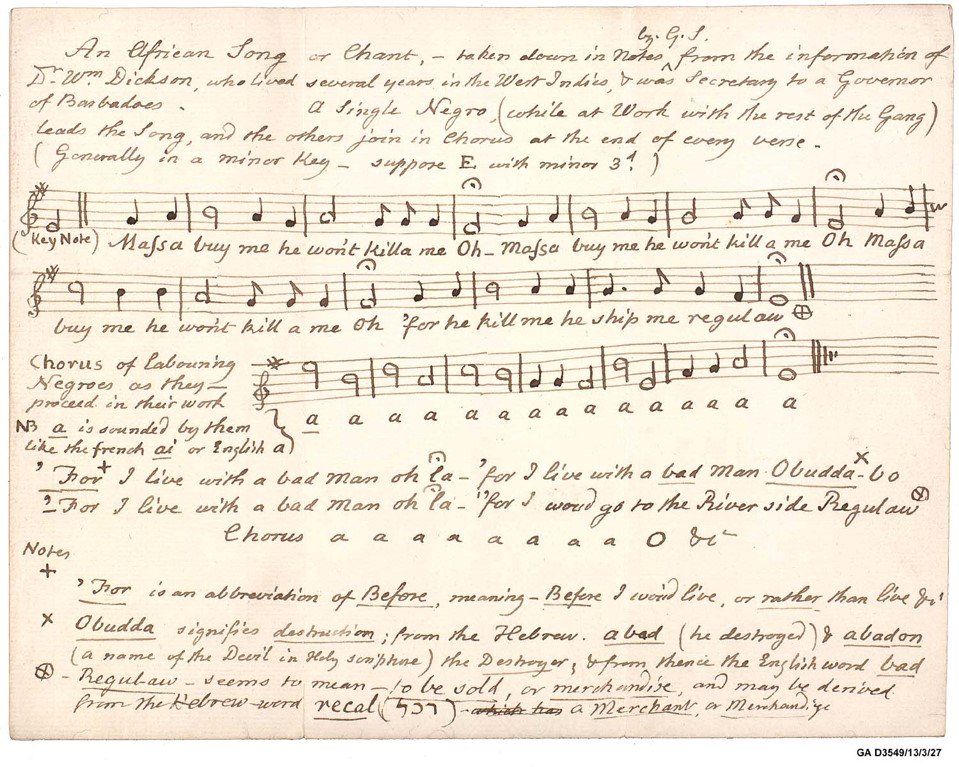 by G. S.
An African Song or Chant, – taken down in Notes ^ from the information of
Dr. Wm. Dickson, who lived several years in the West Indies, & was Secretary to a Governor
of Barbadoes. A Single Negro (while at Work with the rest of the Gang)
leads the Song, and the others join in Chorus at the end of every verse.
(Generally in a minor Key – suppose E with minor 3d.)
(Key Note) Maſsa buy me he won't killa me Oh – Maſsa buy me he won't kill a me Oh Maſsa
buy me he won't kill a me Oh 'for he kill me he ship me regulaw ⊗
Chorus of Labouring
Negroes as they –
proceed in their work
NB a is sounded by them
like the french ai or English a)
a a a a a a a a a a a a
'For + I live with a bad man oh la – 'for I live with a bad man Obudda x -bo
'For I live with a bad man oh 'la – 'for I would go to the River side Regulaw ⊗
Chorus a a a a a a a a O &c
Notes
+
'For is an abbreviation of Before, meaning – Before I wo'd live, or rather than live &c
x Obudda signifies destruction; from the Hebrew. abad (he destroyed) & abadon
(a name of the Devil in Holy scripture) the Destroyer; & from thence the English word bad
⊗ – Regulaw – seems to mean – to be sold, or merchandise, and may be derived
from the Hebrew word recal (רכל) – which has a Merchant, or Merchandize
GA D3549/13/3/27